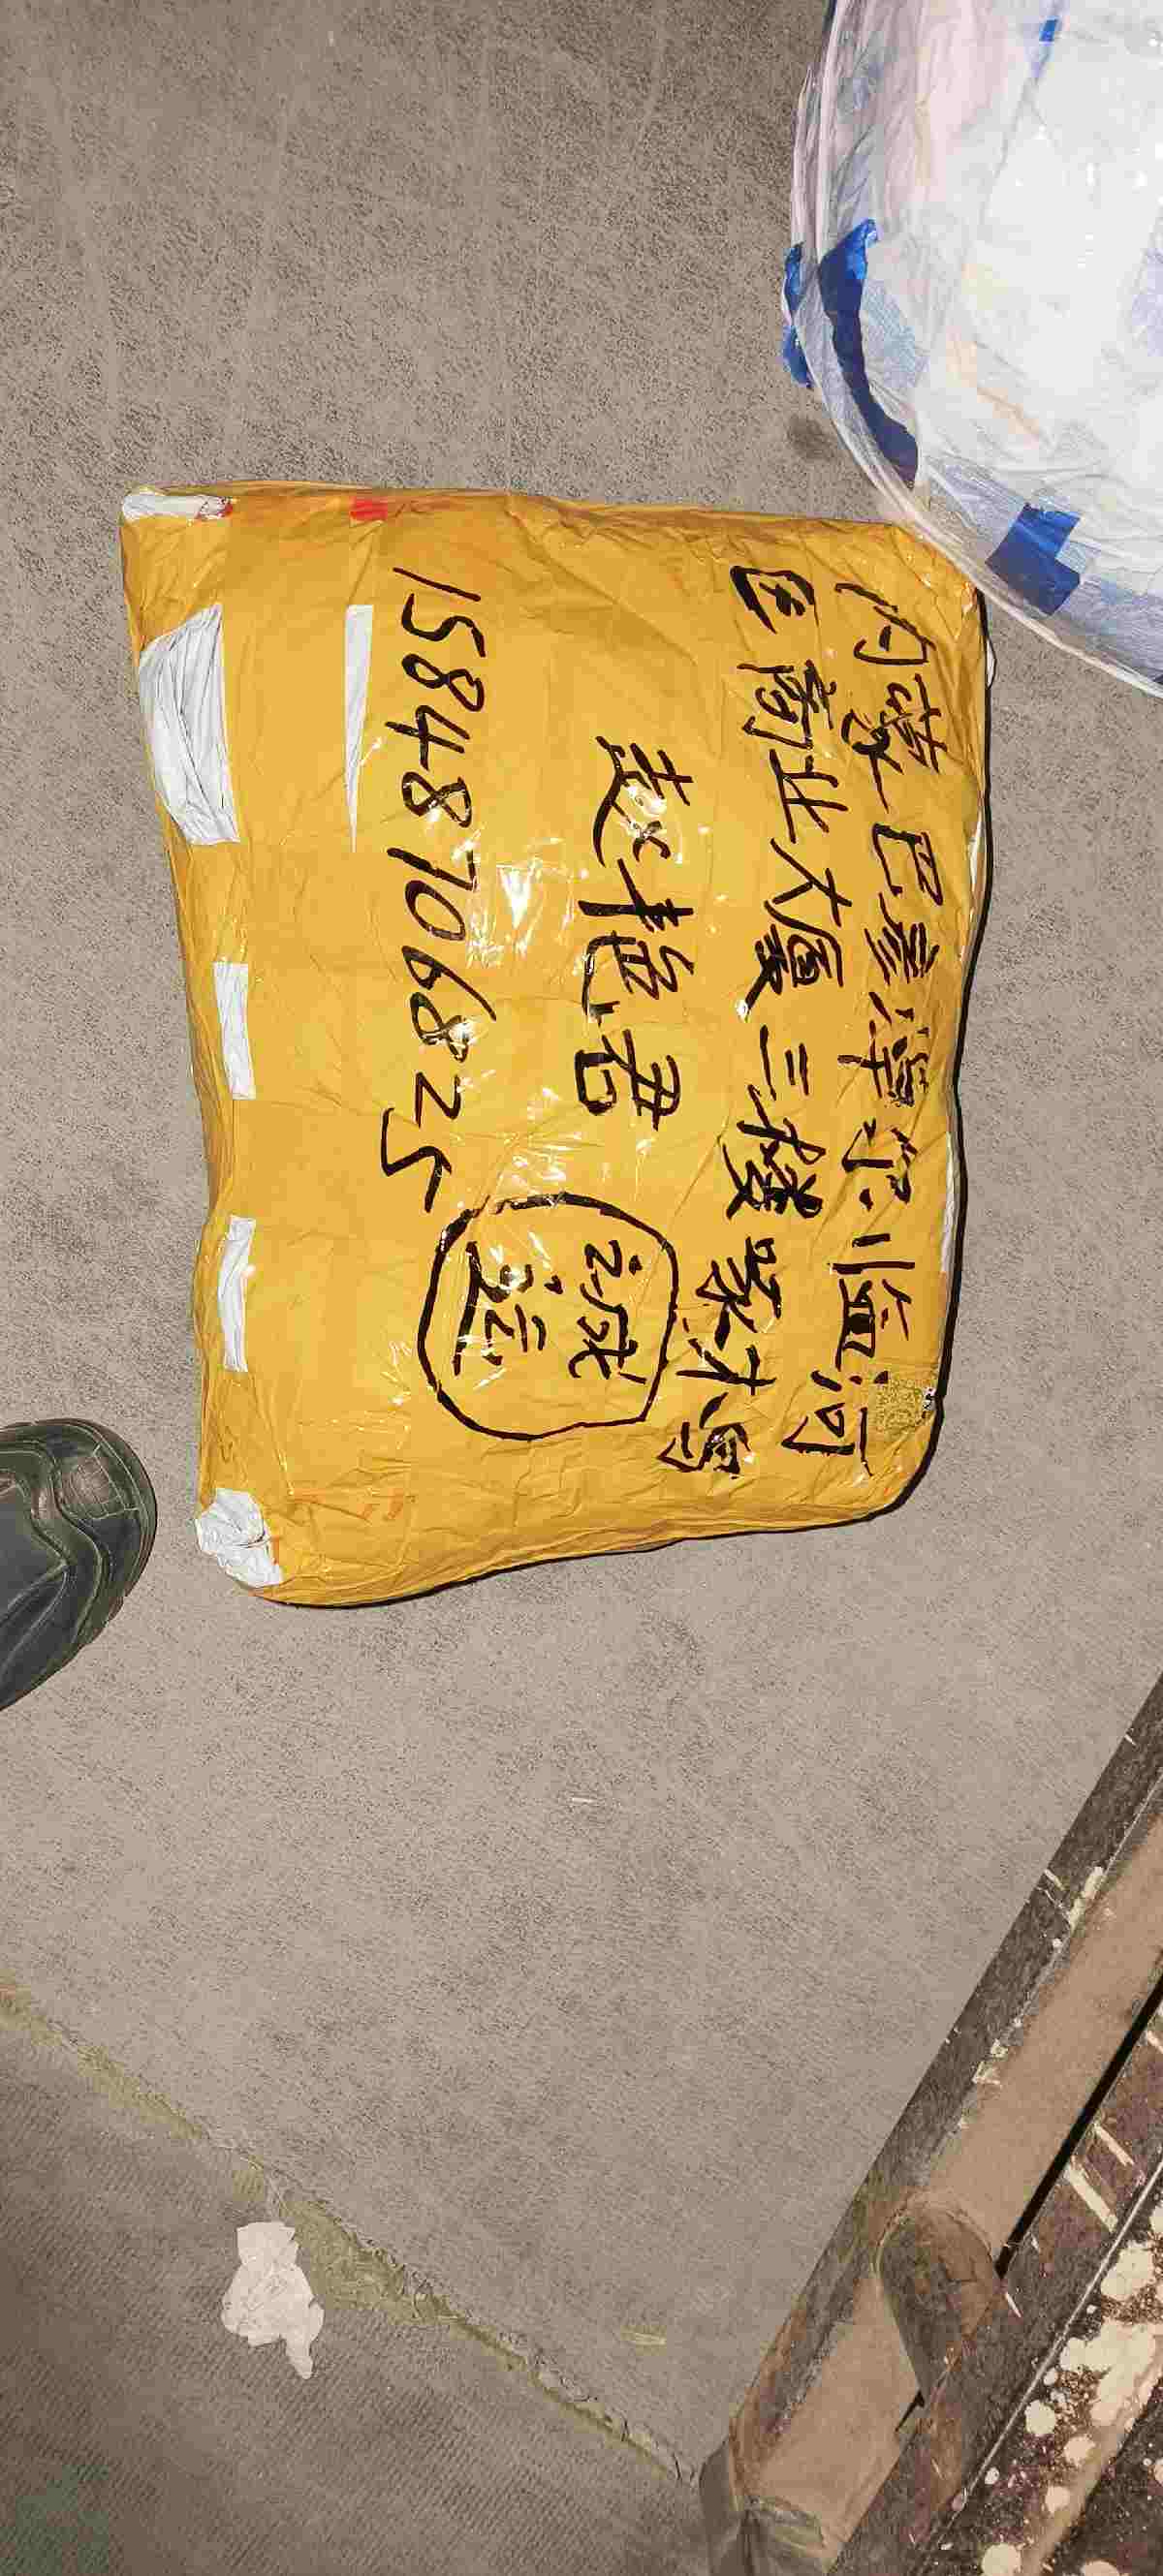 内蒙巴彦淖尔临河
区商业大厦三楼菜木鸟
赵艳君
15848706825
诚
运